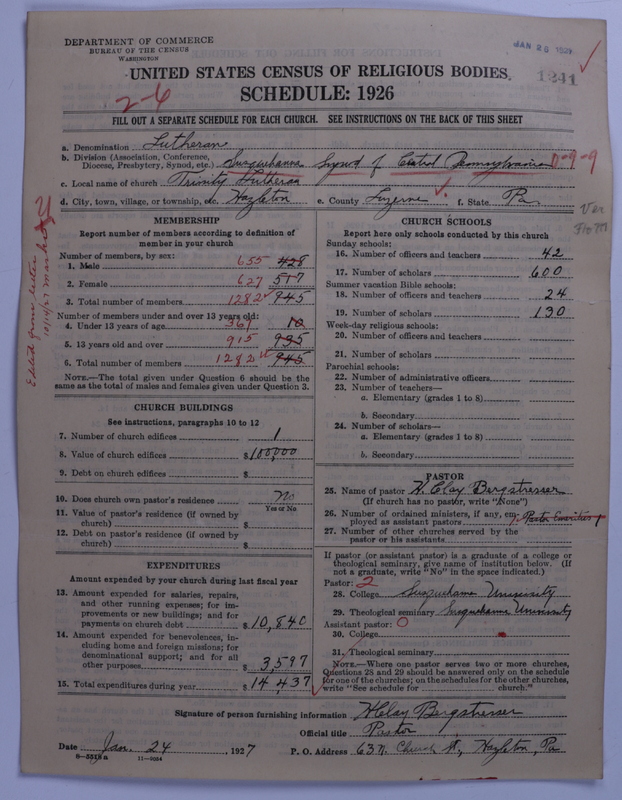 DEPARTMENT OF COMMERCE
BUREAU OF THE CENSUS
WASHINGTON
JAN 26 1927
1241
UNITED STATES CENSUS OF RELIGIOUS BODIES
SCHEDULE: 1926
2-6
FILL OUT A SEPARATE SCHEDULE FOR EACH CHURCH. SEE INSTRUCTIONS ON THE BACK OF THIS SHEET
a. Denomination Lutheran
b. Division (Association, Conference, Diocese, Presbytery, Synod, etc.) Susquehanna Synod of Central Pennsylvania 0-9-9
c. Local name of church Trinity Lutheran
d. City, town, village, or township, etc. Hazleton e. County Luzerne f. State Pa
MEMBERSHIP
Report number of members according to definition of
member in your church
Number of members, by sex:
1. Male 655 428
2. Female 627 517
3. Total number of members 1282 945
Number of members under and over 13 years old:
4. Under 13 years of age 367 10
5. 13 years old and over 915 935
6. Total number of members 1282 945
NOTE.—The total given under Question 6 should be the
same as the total of males and females given under Question 3.
CHURCH BUILDINGS
See instructions, paragraphs 10 to 12
7. Number of church edifices 1
8. Value of church edifices $100,000
9. Debt on church edifices $
10. Does church own pastor's residence No
Yes or No
11. Value of pastor's residence (if owned by
church) $
12. Debt on pastor's residence (if owned by
church) $
EXPENDITURES
Amount expended by your church during last fiscal year
13. Amount expended for salaries, repairs,
and other running expenses; for im-
provements or new buildings; and for
payments on church debt $10,840
14. Amount expended for benevolences, in-
cluding home and foreign missions; for
denominational support; and for all
other purposes 3,597
15. Total expenditures during year $14,437
CHURCH SCHOOLS
Report here only schools conducted by this church
Sunday schools:
16. Number of officers and teachers 42
17. Number of scholars 600
Summer vacation Bible schools:
18. Number of officers and teachers 24
19. Number of scholars 130
Week-day religious schools:
20. Number of officers and teachers
21. Number of scholars
Parochial schools:
22. Number of administrative officers
23. Number of teachers—
a. Elementary (grades 1 to 8)
b. Secondary
24. Number of scholars—
a. Elementary (grades 1 to 8)
b. Secondary
PASTOR
25. Name of pastor H. Clay Bergstresser
(If church has no pastor, write "None")
26. Number of ordained ministers, if any, em-
ployed as assistant pastors 1, Pastor Emeritus
27. Number of other churches served by the
pastor or his assistants
If pastor (or assistant pastor) is a graduate of a college or
theological seminary, give name of institution below. (If
not a graduate, write "No" in the space indicated.)
Pastor: 2
28. College Susquehanna University
29. Theological seminary Susquehanna University
Assistant pastor: 0
30. College
31. Theological seminary
NOTE.—Where one pastor serves two or more churches,
Questions 28 and 29 should be answered only on the schedule
for one of the churches; on the schedules for the other churches,
write "See schedule for church."
Signature of person furnishing information H Clay Bergstresser
Official title Pastor
Date Jan. 24, 1927 P. O. Address 637 N. Church St., Hazleton, Pa
8-5518a 11-9054